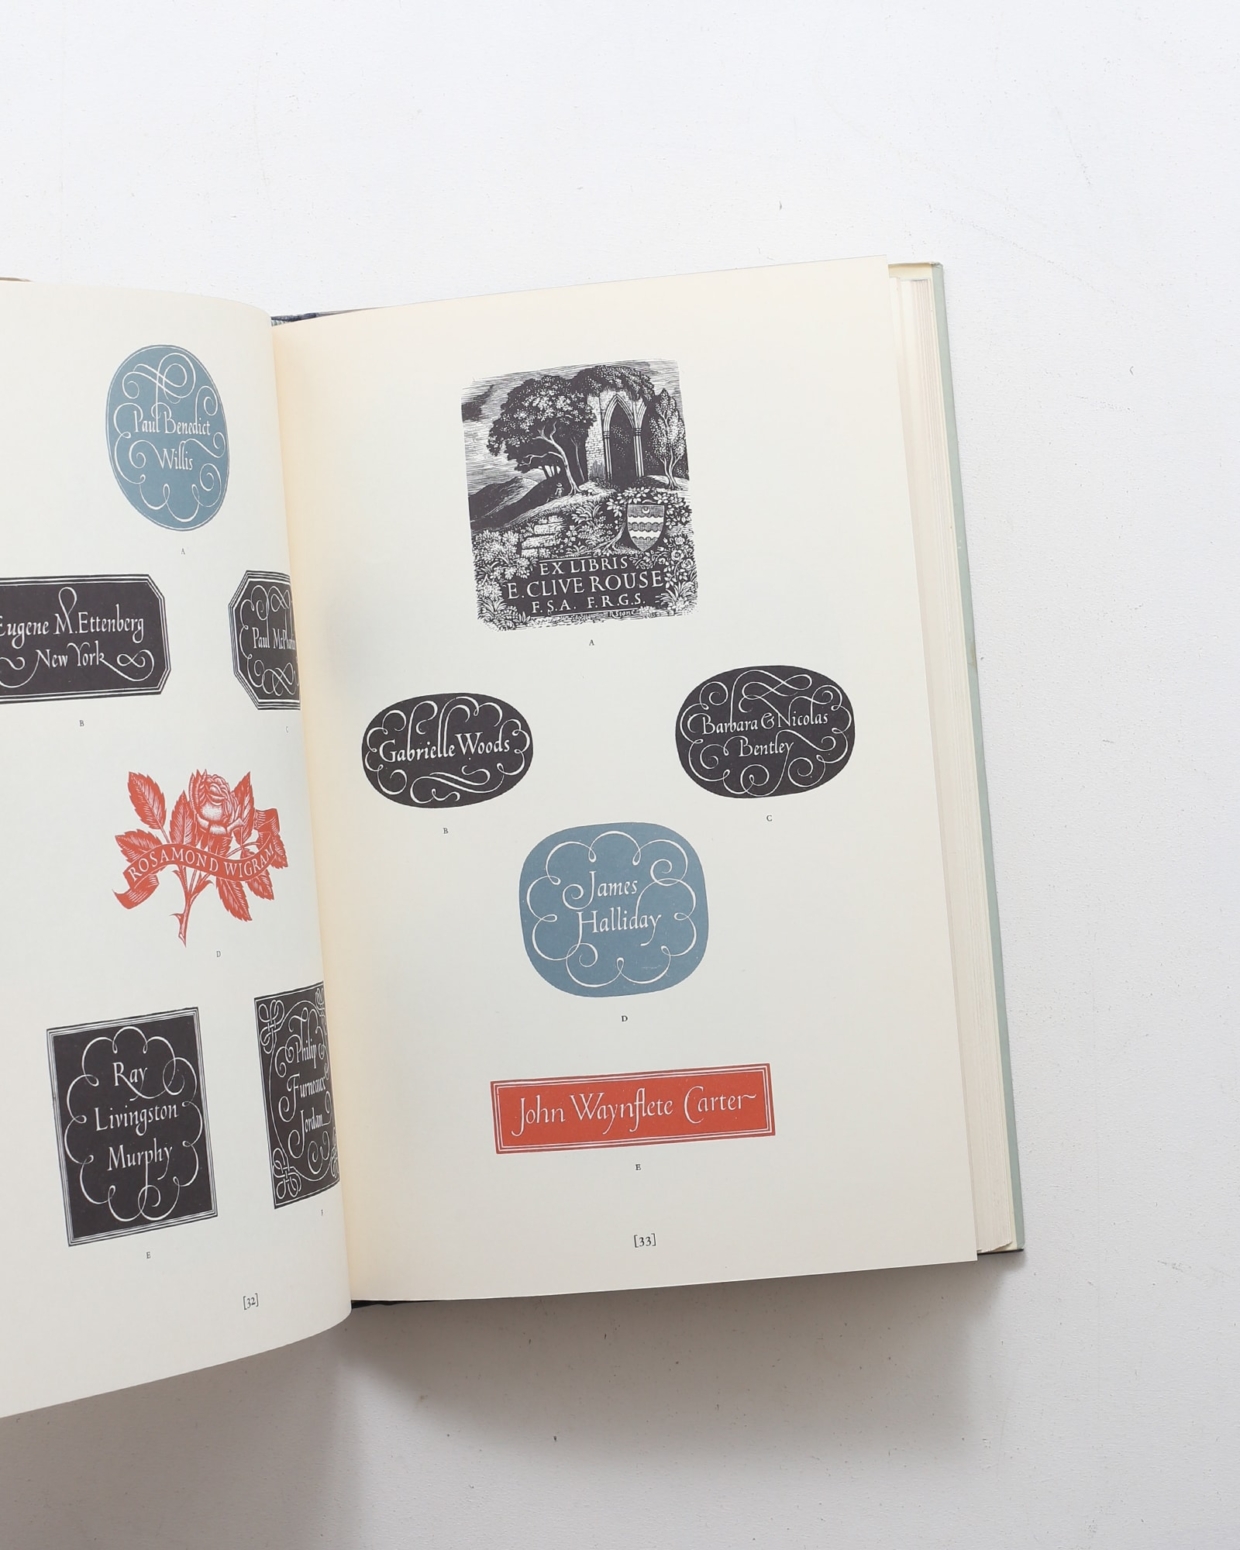 Paul Benedict
Willis
A
Eugene M. Ettenberg
New York
B
Paul
C
ROSAMOND WIGRAM
D
Ray
Livingston
Murphy
E
Philip
Furneaux
Jordan
[32]
EX LIBRIS
E. CLIVE ROUSE
F.S.A. F.R.G.S.
A
Gabrielle Woods
B
Barbara & Nicolas
Bentley
C
James
Halliday
D
John Waynflete Carter
E
[33]